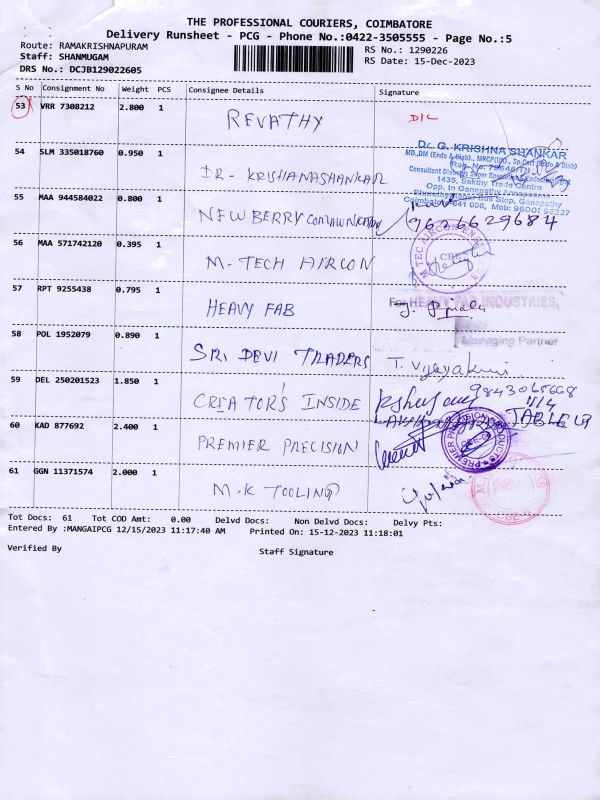 THE PROFESSIONAL COURIERS, COIMBATORE
Delivery Runsheet - PCG - Phone No.:0422-3505555 - Page No.:5
Route: RAMAKRISHNAPURAM RS No.: 1290226
Staff: SHANMUGAM RS Date: 15-Dec-2023
DRS No.: DCJB129022605
S No Consignment No Weight PCS Consignee Details Signature
53 VRR 7308212 2.800 1 REVATHY D/L
54 SLM 335018760 0.950 1 DR- KRISHANASAANKAR
Dr. G. KRISHNA SHANKAR
MD.,DM (Endo & Diab)., MRCP(UK)., Sp.Cert (Endo & Diab)
1435, Sakthy Trade Centre
Opp. to Ganapathy
Bus Stop, Ganapathy
Coimbatore-641 006, Mob: 96001 66227
55 MAA 944584022 0.800 1 NEWBERRY 9626629684
56 MAA 571742120 0.395 1 M-TECH AIRCON
CBE
57 RPT 9255438 0.795 1 HEAVY FAB
For HEAVY FAB INDUSTRIES,
Managing Partner
58 POL 1952079 0.890 1 SRI DEVI TRADERS T. Vijayakumi
59 DEL 250201523 1.850 1 CREATOR'S INSIDE 9843065668
60 KAD 877692 2.400 1 PREMIER PRECISION
61 GGN 11371574 2.000 1 M.K TOOLING
Tot Docs: 61 Tot COD Amt: 0.00 Delvd Docs: Non Delvd Docs: Delvy Pts:
Entered By :MANGAIPCG 12/15/2023 11:17:40 AM Printed On: 15-12-2023 11:18:01
Verified By Staff Signature